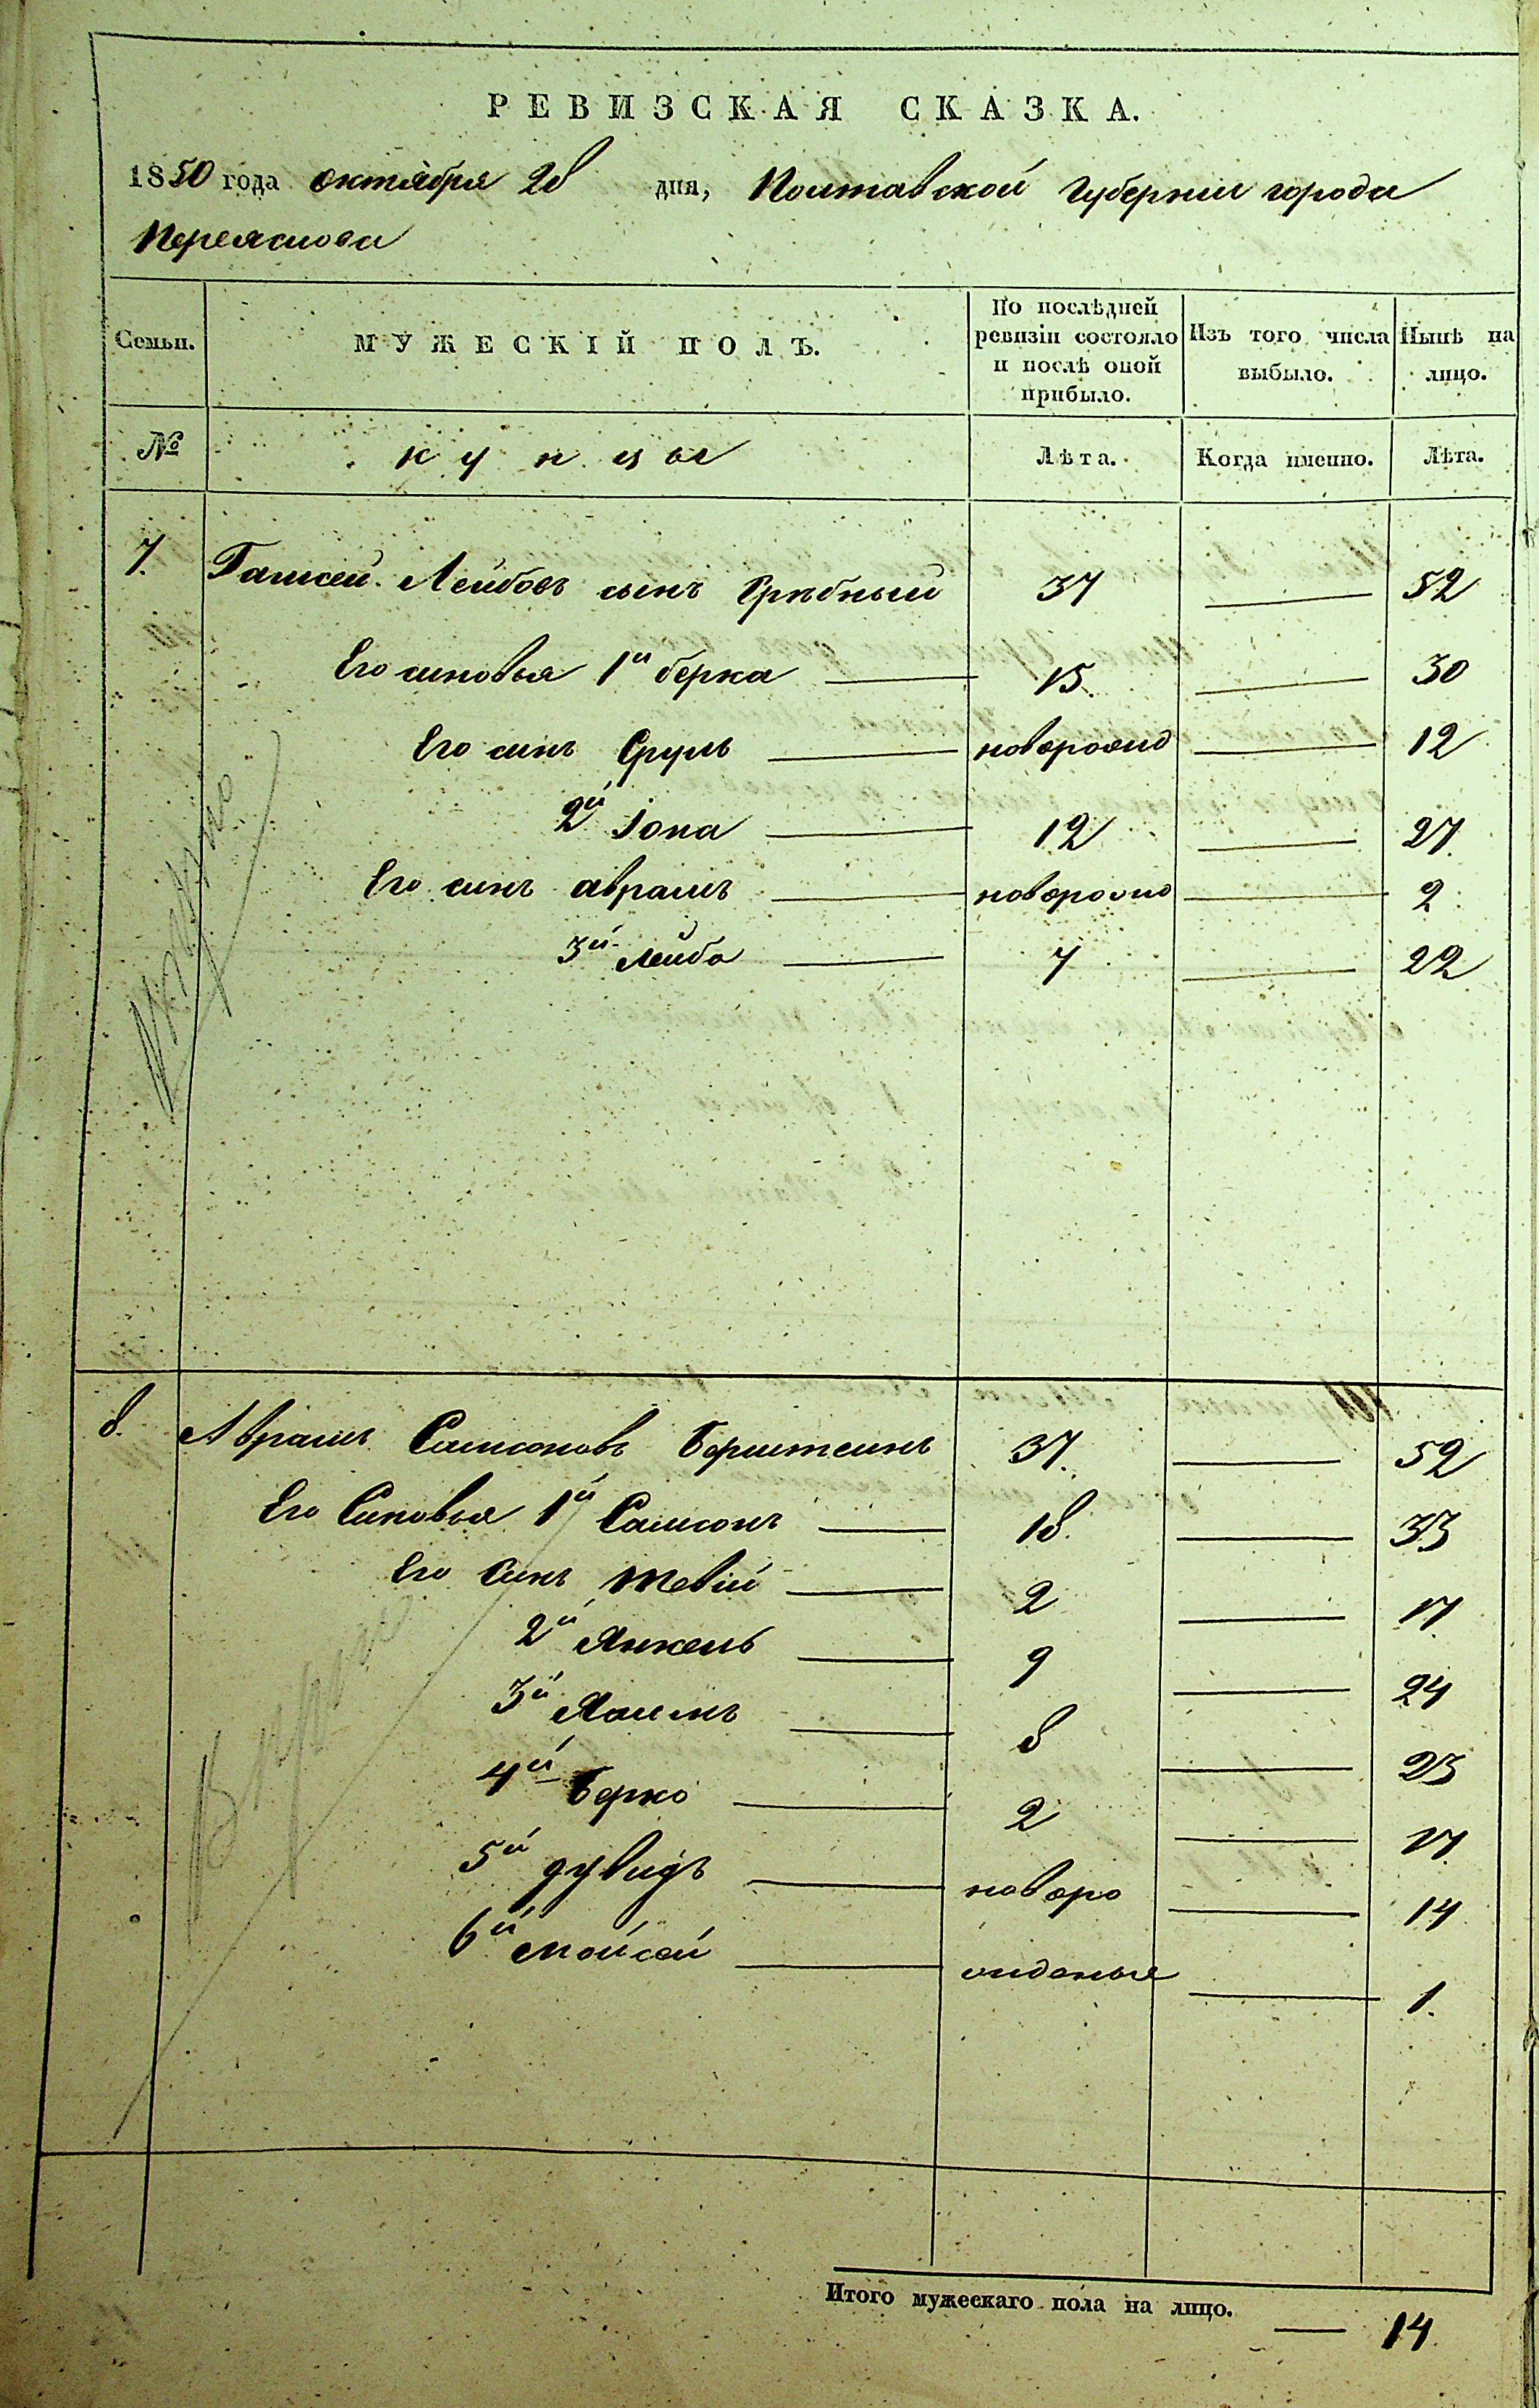 РЕВИЗСКАЯ СКАЗКА.
1850 года октября 28 дня, Полтавской Губернии города
Переяслова
Семьи. МУЖЕСКІЙ ПОЛЪ. По послѣдней ревизіи состояло и послѣ оной прибыло. Изъ того числа выбыло. Нынѣ на лицо.
№ купцы Лѣта. Когда именно. Лѣта.
7. Лейбовъ сынъ 37 52
Его синовья 1й берка 15. 30
Его синъ Сруль новорожд 12
2й Іона 12 27.
Его синъ аврамъ новорожд 2
3й Лейба 7 22
8. Аврамъ Самсоновъ Борштеинъ 37. 52
Его Синовья 1й Самсонъ 18. 33
Его Синъ Тевій 2 17
2й Янкель 9 24
3й 8 23
4й Берко 2 17.
5й дувидъ новоро 14
6й Мойсей жденые 1.
Итого мужескаго пола на лицо. 14.